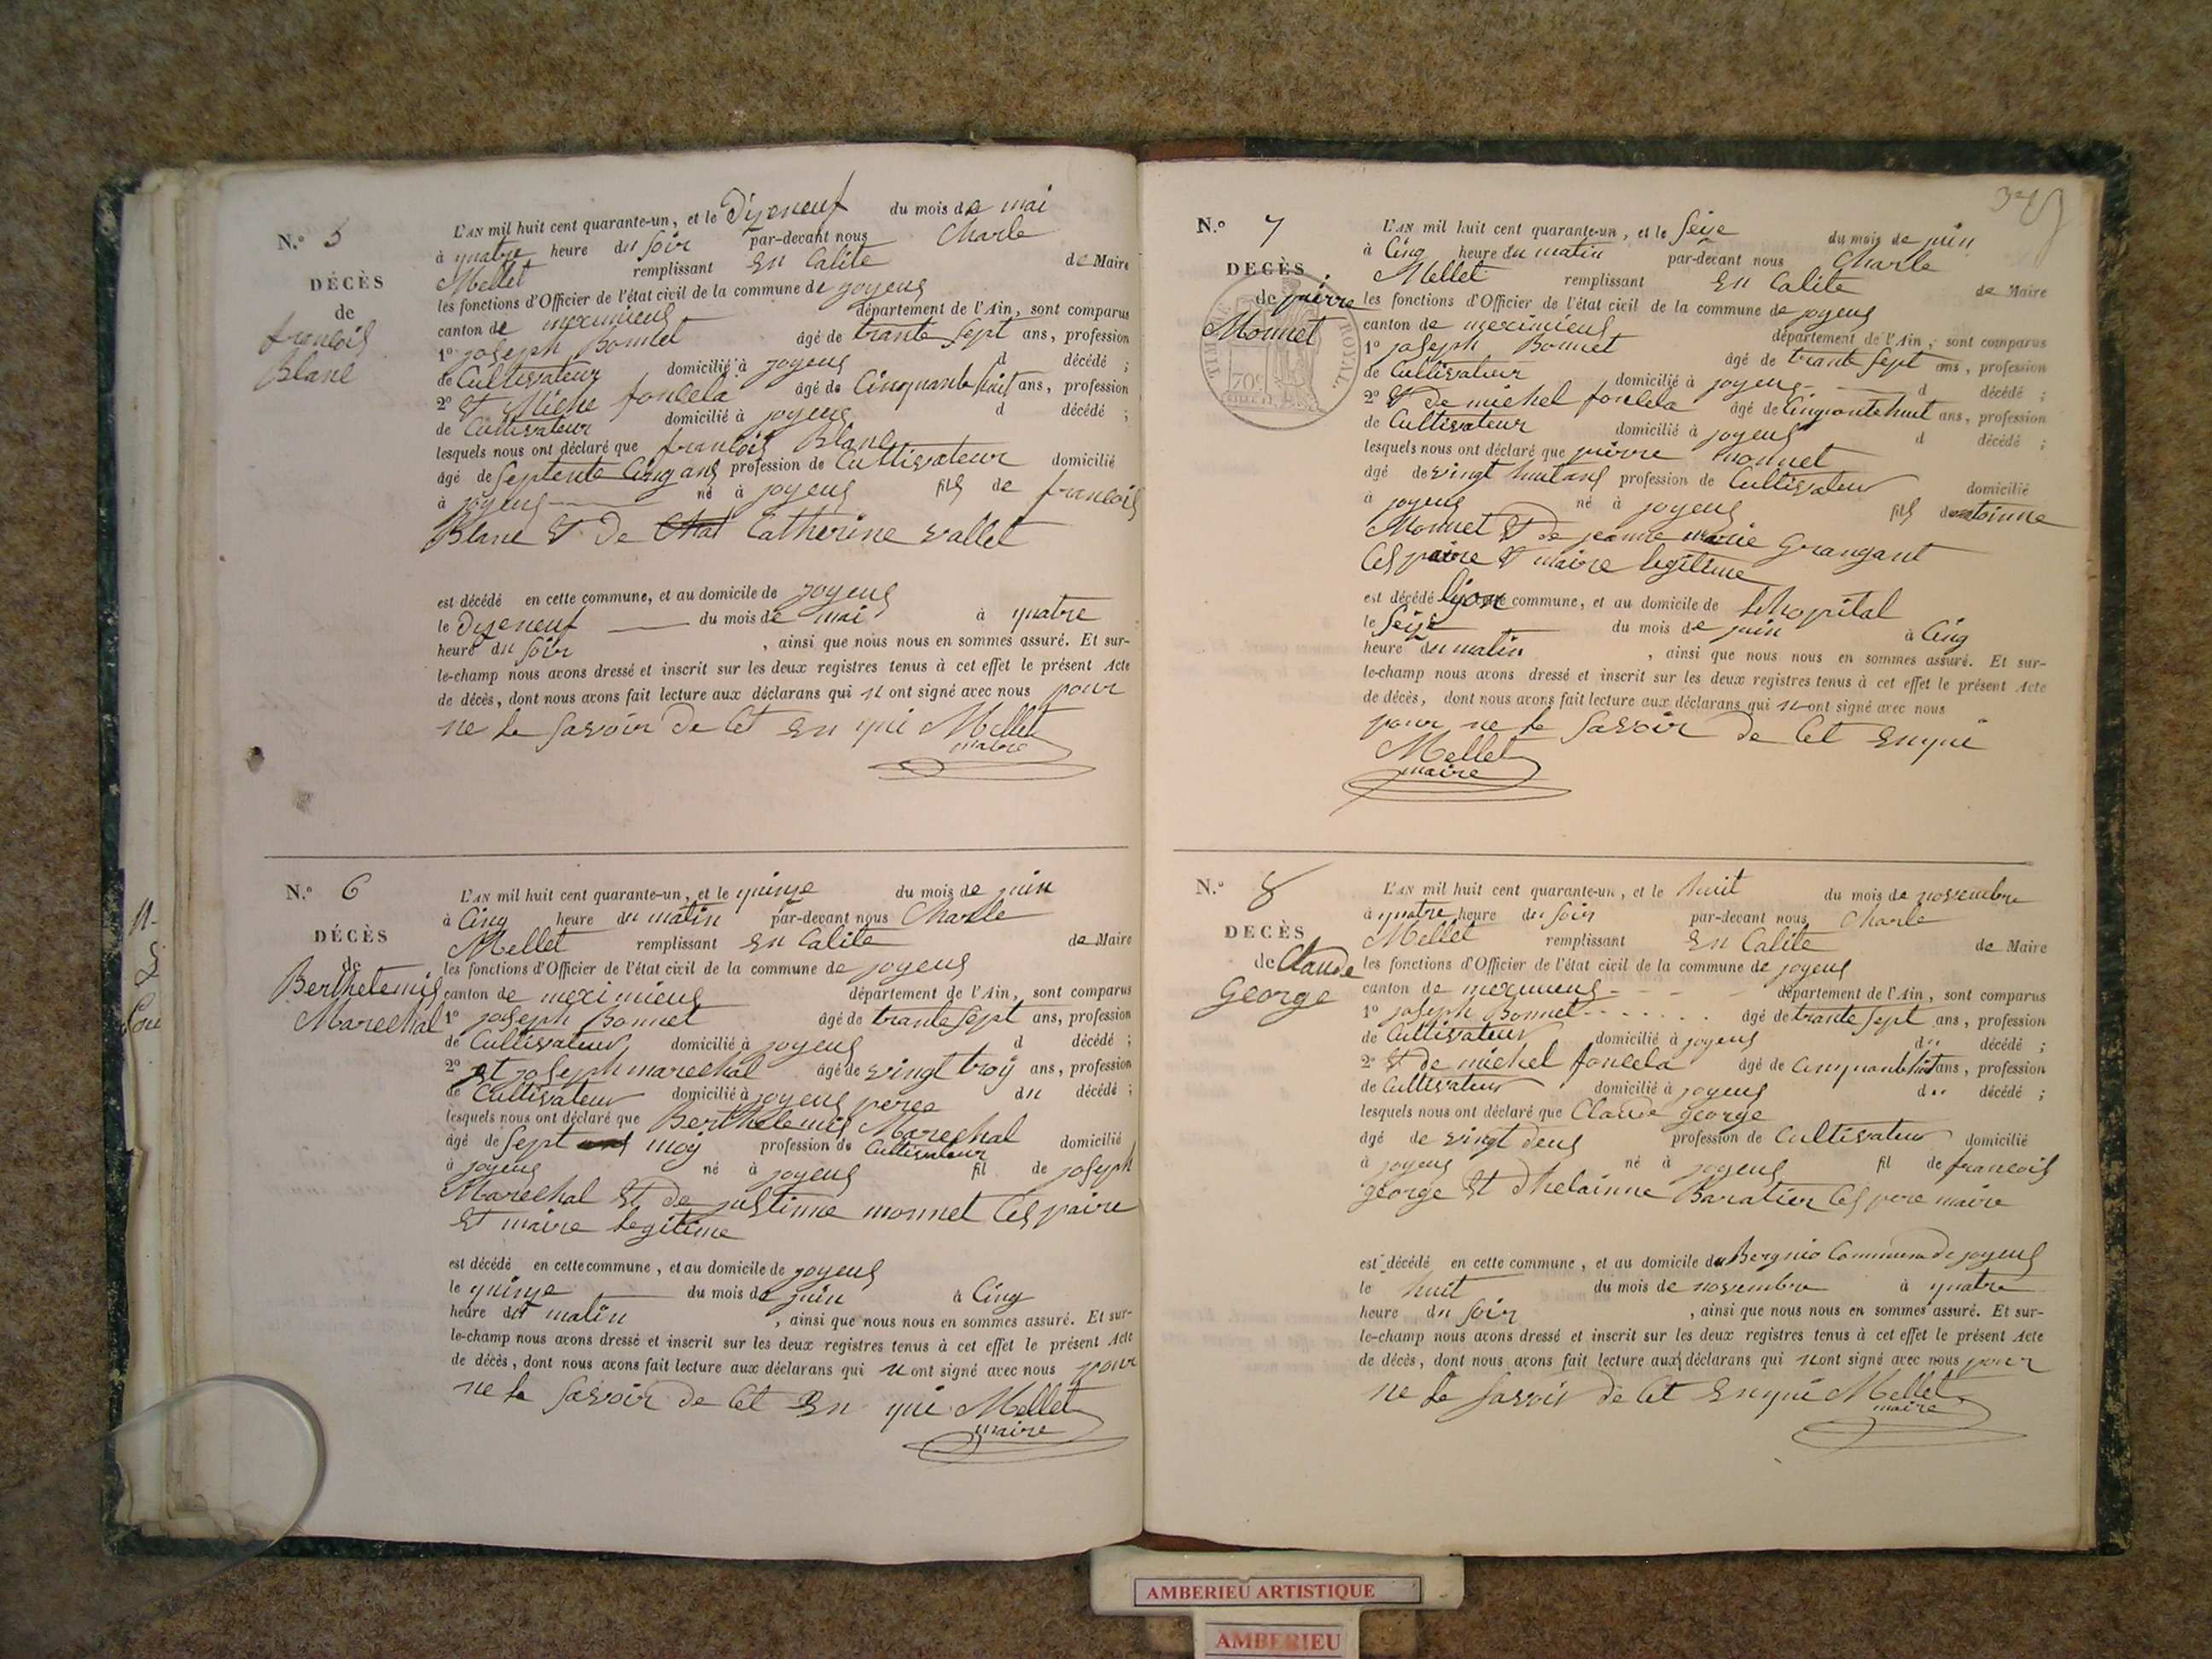 N.° 5
DÉCÈS
de
francois
Blanc
L'AN mil huit cent quarante-un, et le Dizeneuf du mois de mai
à quatre heure du soir par-devant nous Charle
Mellet remplissant En Calite de Maire
les fonctions d'Officier de l'état civil de la commune de joyeux
canton de meximieux département de l'Ain, sont comparus
1° joseph Bonnet âgé de trante sept ans, profession
de Cultivateur domicilié à joyeux d décédé ;
2° Et Miche fonlela âgé de Cinquante huit ans, profession
de Cultivateur domicilié à joyeux d décédé ;
lesquels nous ont déclaré que francois Blanc
âgé de septente Cinq ans profession de Cultivateur domicilié
à joyeux né à joyeux fils de francois
Blanc Et De Catherine vallet
est décédé en cette commune, et au domicile de joyeux
le Dizeneuf du mois de mai à quatre
heure du soir , ainsi que nous nous en sommes assuré. Et sur-
le-champ nous avons dressé et inscrit sur les deux registres tenus à cet effet le présent Acte
de décès, dont nous avons fait lecture aux déclarans qui n ont signé avec nous pour
ne le savoir de Cet En qui Mellet
maire
N.° 6
DÉCÈS
de
Berthelemis
Marechal
L'AN mil huit cent quarante-un, et le quinze du mois de juin
à Cinq heure du matin par-devant nous Charle
Mellet remplissant En Calite de Maire
les fonctions d'Officier de l'état civil de la commune de joyeux
canton de meximieux département de l'Ain, sont comparus
1° joseph Bonnet âgé de trante sept ans, profession
de Cultivateur domicilié à joyeux d décédé ;
2° et joseph marechal âgé de vingt troy ans, profession
de Cultivateur domicilié à joyeux peree du décédé ;
lesquels nous ont déclaré que Berthelemis Marechal
âgé de sept moy profession de Cultivateur domicilié
à joyeux né à joyeux fil de joseph
Marechal Et de justinne monnet Ces paire
Et maire legitime
est décédé en cette commune, et au domicile de joyeux
le quinze du mois de juin à Cinq
heure du matin , ainsi que nous nous en sommes assuré. Et sur-
le-champ nous avons dressé et inscrit sur les deux registres tenus à cet effet le présent Acte
de décès, dont nous avons fait lecture aux déclarans qui n ont signé avec nous pour
ne le savoir de Cet En qui Mellet
maire
N.° 7
DECÈS
de pierre
Monnet
TIMBRE ROYAL
70c
L'AN mil huit cent quarante-un, et le seize du mois de juin
à Cinq heure du matin par-devant nous Charle
Mellet remplissant En Calite de Maire
les fonctions d'Officier de l'état civil de la commune de joyeux
canton de meximieux département de l'Ain, sont comparus
1° joseph Bonnet âgé de trante sept ans, profession
de Cultivateur domicilié à joyeux d décédé ;
2° Et De michel fonlela âgé de Cinquante huit ans, profession
de Cultivateur domicilié à joyeux d décédé ;
lesquels nous ont déclaré que pierre monnet
âgé de vingt huit ans profession de Cultivateur domicilié
à joyeux né à joyeux fils de antoinne
Monnet Et de jeanne marie Grangant
Ces paire Et maire legitime
est décédé lyon commune, et au domicile de lehopital
le seize du mois de juin à Cinq
heure du matin , ainsi que nous nous en sommes assuré. Et sur-
le-champ nous avons dressé et inscrit sur les deux registres tenus à cet effet le présent Acte
de décès, dont nous avons fait lecture aux déclarans qui n ont signé avec nous
pour ne le savoir de Cet Enqui
Mellet
maire
N.° 8
DECÈS
de Claude
George
L'AN mil huit cent quarante-un, et le huit du mois de novembre
à quatre heure du soir par-devant nous Charle
Mellet remplissant En Calite de Maire
les fonctions d'Officier de l'état civil de la commune de joyeux
canton de meximieux département de l'Ain, sont comparus
1° joseph Bonnet âgé de trante sept ans, profession
de Cultivateur domicilié à joyeux d décédé ;
2° Et de michel fonlela âgé de Cinquante huit ans, profession
de Cultivateur domicilié à joyeux d décédé ;
lesquels nous ont déclaré que Claude george
âgé de vingt deux profession de Cultivateur domicilié
à joyeux né à joyeux fil de francois
george Et dhelainne Baratier Ces pere maire
est décédé en cette commune, et au domicile du Commune de joyeux
le huit du mois de novembre à quatre
heure du soir , ainsi que nous nous en sommes assuré. Et sur-
le-champ nous avons dressé et inscrit sur les deux registres tenus à cet effet le présent Acte
de décès, dont nous avons fait lecture aux déclarans qui n ont signé avec nous pour
ne le savoir de Cet Enqui Mellet
maire
AMBERIEU ARTISTIQUE
AMBERIEU